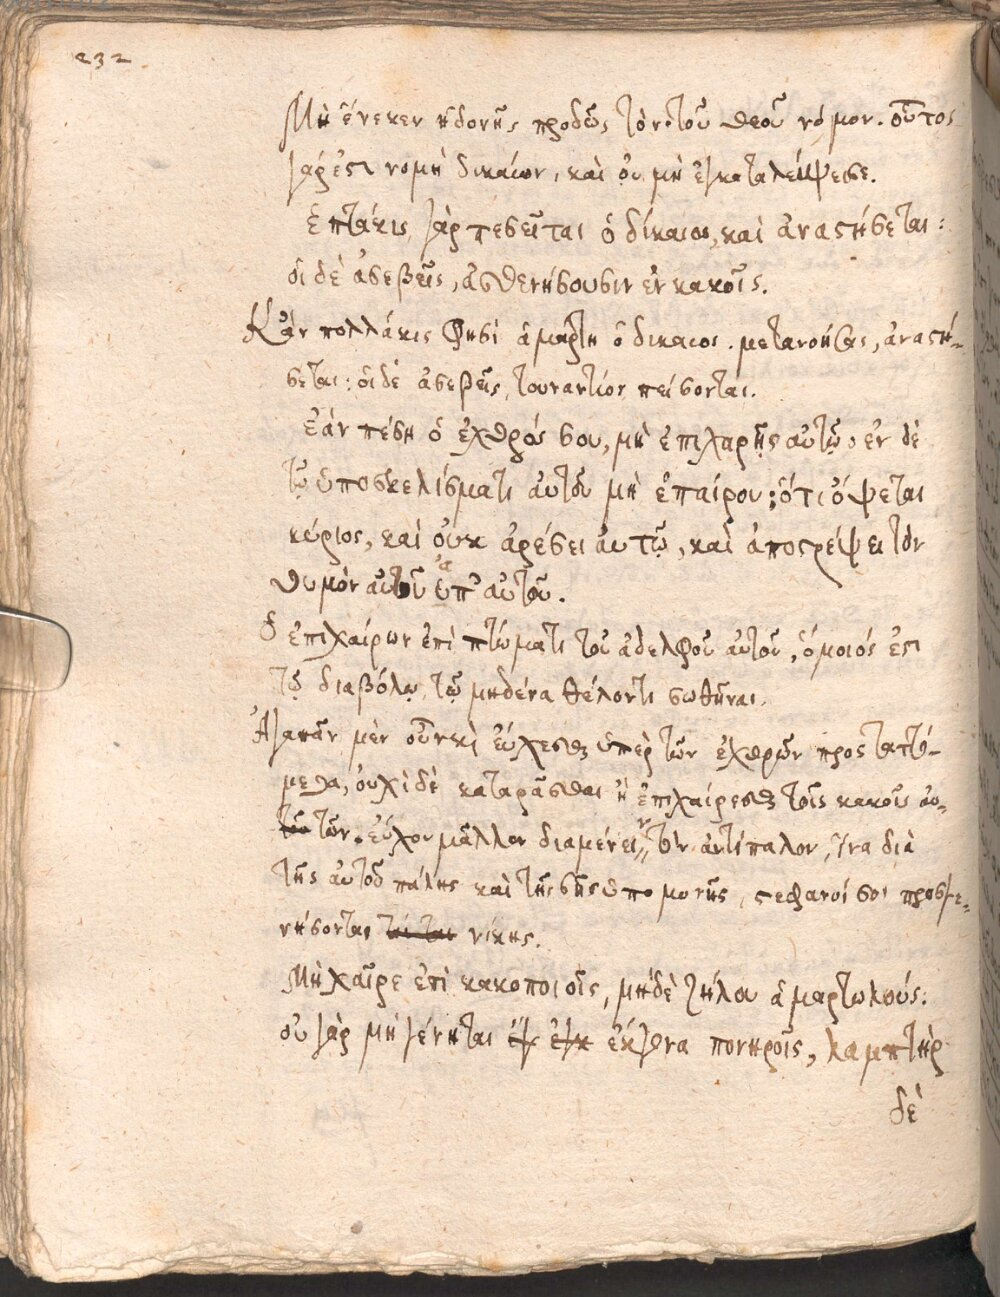 232
Μὴ ἕνεκεν ἡδονῆς προδῶς τὸν τοῦ θεοῦ νόμον. οὗτος
γάρ ἐστι νομὴ δικαίων, καὶ οὐ μὴ ἐγκαταλείψεισε.
Ἑπτάκις γὰρ πεσεῖται ὁ δίκαιος, καὶ ἀναστήσεται:
οἱ δὲ ἀσεβεῖς, ἀσθενήσουσιν ἐν κακοῖς.
Κἂν πολλάκις φησὶ ἁμάρτη ὁ δίκαιος. μετανοήσας, ἀναστή-
σεται: οἱ δὲ ἀσεβεῖς, τουναντίος πείσονται.
Ἐάν πέσῃ ὁ ἐχθρός σου, μὴ ἐπιχαρῇς αὐτῷ. ἐν δὲ
τῷ ὑποσκελίσματι αὐτοῦ μὴ ἐπαίρου: ὅτι ὄψεται
κύριος, καὶ οὐκ ἀρέσει αὐτῷ, καὶ ἀποστρέψει τὸν
θυμὸν αὐτοῦ ἀπ' αὐτοῦ.
Ὁ ἐπιχαίρων ἐπὶ πτώματι τοῦ ἀδελφοῦ αὐτοῦ, ὅμοιός ἐστι
τῷ διαβόλῳ, τῷ μηδένα θέλοντι σωθῆναι.
Ἀγαπᾶν μὲν οὖν καὶ εὔχεσθαι ὑπὲρ τῶν ἐχθρῶν προστατό-
μεθα, οὐχὶ δὲ καταρᾶσθαι ἢ ἐπιχαίρεσθαι τοῖς κακοῖς αὐ-
τῶν. εὔχου μᾶλλον διαμένειν τὸν ἀντίπαλον, ἵνα διὰ
τῆς αὐτοῦ πάλης καὶ τῆς σῆς ὑπομονῆς, στέφανοί σοι προσγε-
νήσονται νίκης.
Μὴ χαῖρε ἐπὶ κακοποιοῖς, μηδὲ ζήλου ἁμαρτωλούς:
οὐ γὰρ μὴ γένηται ἔκγονα πονηροῖς, λαμπτὴρ
δὲ